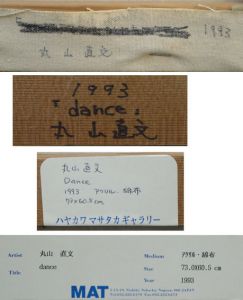 1993
丸山直文
1993
「dance」
丸山直文
丸山直文
Dance
1993 アクリル.綿布
73×60.5cm
ハヤカワマサタカギャラリー
Artist 丸山 直文
Title dance
Medium アクリル・綿布
Size 73.0X60.5 cm
Year 1993
MAT